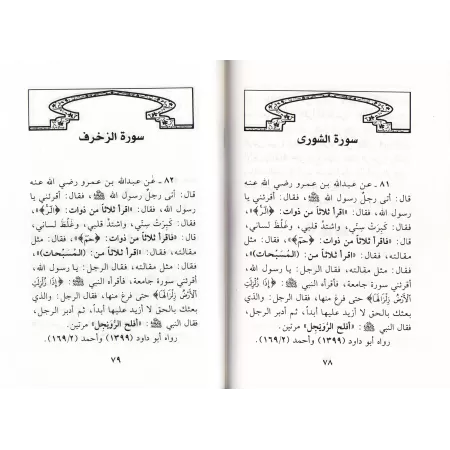 سورة الشورى
٨١ ـ عن عبدالله بن عمرو رضي الله عنه
قال: أتى رجلٌ رسول الله ﷺ، فقال: أقرئني يا
رسول الله، فقال: «اقرأ ثلاثاً من ذوات: ﴿الر﴾»،
فقال: كَبِرَتْ سِنِّي، واشتدَّ قلبي، وغَلُظَ لساني،
قال: «فاقرأ ثلاثاً من ذوات: ﴿حم﴾»، فقال: مثل
مقالته، فقال: «اقرأ ثلاثاً من: (المُسَبِّحات)»،
فقال: مثل مقالته، فقال الرجل: يا رسول الله،
أقرئني سورة جامعة، فأقرأه النبي ﷺ: ﴿إِذَا زُلْزِلَتِ
الْأَرْضُ زِلْزَالَهَا﴾ حتى فرغ منها، فقال الرجل: والذي
بعثك بالحق لا أزيد عليها أبداً، ثم أدبر الرجل،
فقال النبي ﷺ: «أفلح الرُّوَيْجِل» مرتين.
رواه أبو داود (١٣٩٩) وأحمد (١٦٩/٢).
٧٨
سورة الزخرف
٨٢ ـ عن عبدالله بن عمرو رضي الله عنه
قال: أتى رجلٌ رسول الله ﷺ، فقال: أقرئني يا
رسول الله، فقال: «اقرأ ثلاثاً من ذوات: ﴿الر﴾»،
فقال: كَبِرَتْ سِنِّي، واشتدَّ قلبي، وغَلُظَ لساني،
قال: «فاقرأ ثلاثاً من ذوات: ﴿حم﴾»، فقال: مثل
مقالته، فقال: «اقرأ ثلاثاً من: (المُسَبِّحات)»،
فقال: مثل مقالته، فقال الرجل: يا رسول الله،
أقرئني سورة جامعة، فأقرأه النبي ﷺ: ﴿إِذَا زُلْزِلَتِ
الْأَرْضُ زِلْزَالَهَا﴾ حتى فرغ منها، فقال الرجل: والذي
بعثك بالحق لا أزيد عليها أبداً، ثم أدبر الرجل،
فقال النبي ﷺ: «أفلح الرُّوَيْجِل» مرتين.
رواه أبو داود (١٣٩٩) وأحمد (١٦٩/٢).
٧٩